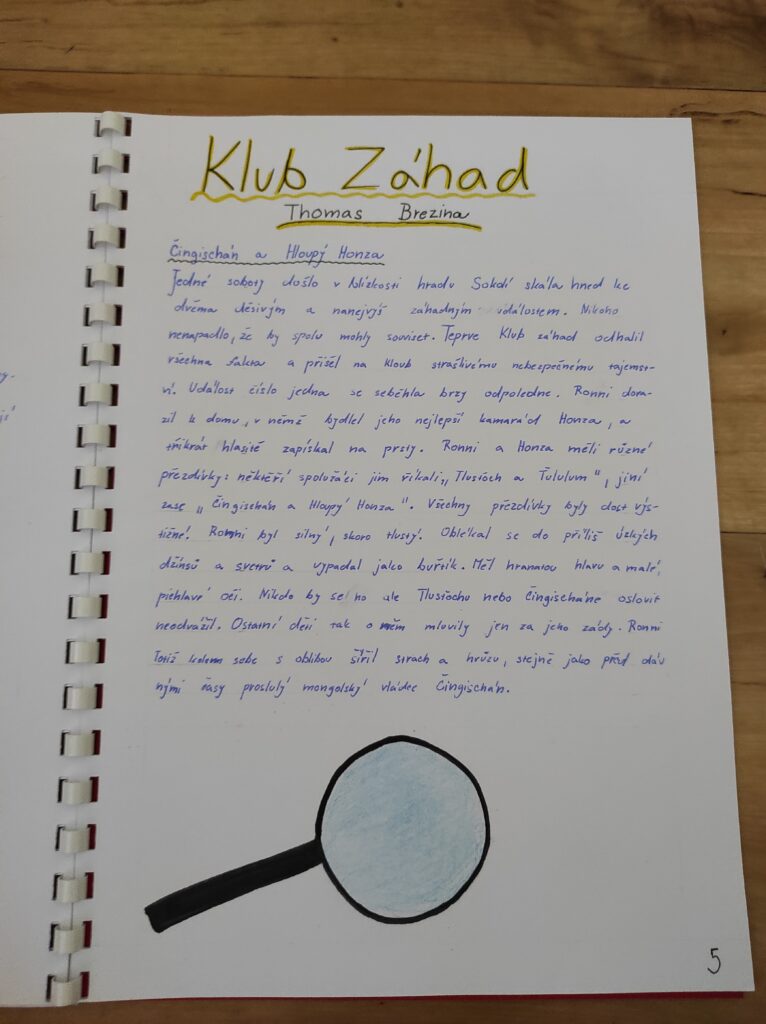 Klub Záhad
Thomas Brezina
Čingischán a Hloupý Honza
Jedné soboty došlo v blízkosti hradu Sokolí skála hned ke
dvěma děsivým a nanejvýš záhadným událostem. Nikoho
nenapadlo, že by spolu mohly souviset. Teprve Klub záhad odhalil
všechna fakta a přišel na kloub strašlivému nebezpečnému tajemst-
ví. Událost číslo jedna se seběhla brzy odpoledne. Ronni dora-
zil k domu, v němž bydlel jeho nejlepší kamarád Honza, a
třikrát hlasitě zapískal na prsty. Ronni a Honza měli různé
přezdívky: někteří spolužáci jim říkali „Tlustoch a Ťululum", jiní
zase „Čingischán a Hloupý Honza". Všechny přezdívky byly dost výs-
tižné! Ronni byl silný, skoro tlustý. Oblékal se do příliš úzkých
džínsů a svetrů a vypadal jako buřtík. Měl hranatou hlavu a malé,
pichlavé oči. Nikdo by se ho ale Tlusťochu nebo Čingischáne oslovit
neodvážil. Ostatní děti tak o něm mluvily jen za jeho zády. Ronni
totiž kolem sebe s oblibou šířil strach a hrůzu, stejně jako před dáv
nými časy proslulý mongolský vládce Čingischán.
5